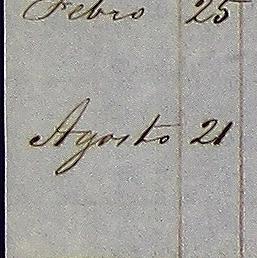 Febro 25
Agosto 21